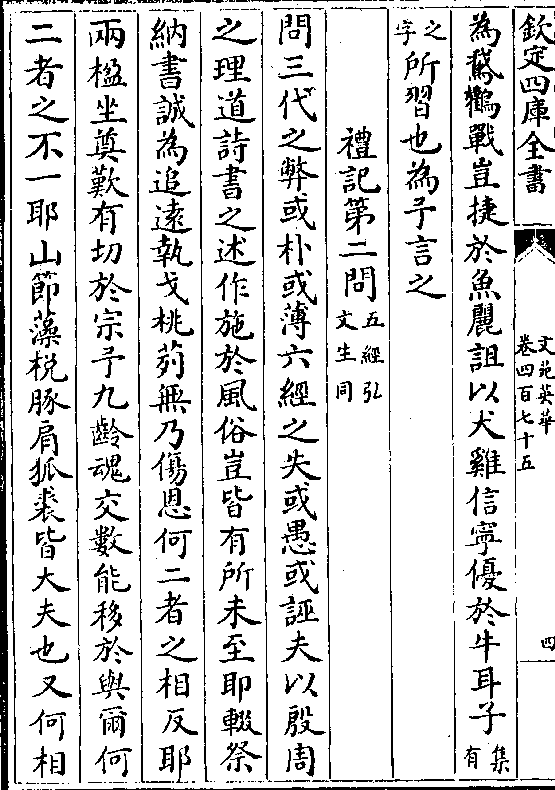 欽定四庫全書
文苑英華
卷四百七十五
四
為鵞鸛戰豈捷於魚麗詛以犬雞信寧優於牛耳子集有
之字所習也為予言之
禮記第二問五經弘文生同
問三代之弊或朴或薄六經之失或愚或誣夫以殷周
之理道詩書之述作施於風俗豈皆有所未至耶輟祭
納書誠為追遠執戈桃茢無乃傷恩何二者之相反耶
兩楹坐奠歎有切於宗予九齡魂交數能移於與爾何
二者之不一耶山節藻梲豚肩狐裘皆大夫也又何相